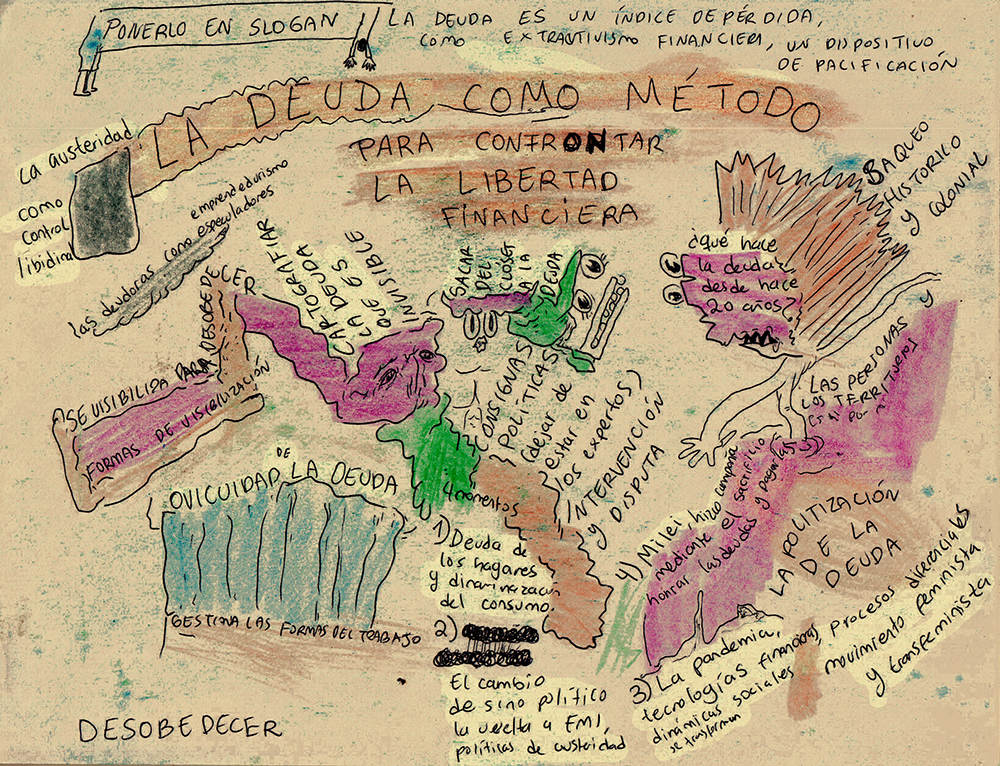 PONERLO EN SLOGAN
LA DEUDA ES UN ÍNDICE DE PÉRDIDA,
COMO EXTRAVTIVISMO FINANCIERI, UN DISPOSITIVO
DE PACIFICACIÓN
LA DEUDA COMO MÉTODO
PARA CONFRONTAR
LA LIBERTAD
FINANCIERA
La austeridad
como
control
libidinal
las deudoras como especuladores
emprendedurismo
SAQUEO
HISTORICO
Y COLONIAL
¿qué hace
la deuda
desde hace
20 años?
CARTOGRAFIAR
LA DEUDA
QUE ES
INVISIBLE
SACAR
DEL
CLOSET
A LA
DEUDA
SE VISIBILIDA PARA DESOBEDECER
FORMAS DE VISIBILIZACIÓN
CONSIGNAS
POLÍTICAS
(dejar de
estar en
los expertos)
INTERVENCIÓN
Y DISPUTA
LAS PERSONAS Y
LOS TERRITORIOS
OVICUIDAD DE LA DEUDA
GESTIONA LAS FORMAS DEL TRABAJO
4 momentos
1) Deuda de
los hogares
y dinaminazacin
del consumo.
2)
El cambio
de sino político
la vuelta a FMI,
políticas de austeridad
3) La pandemia,
tecnologías financieras, procesos diferenciales
dinámicas sociales movimiento feminista
se transforman y transfeminista
4) Milei hizo campaña
mediante el sacrificio
honrar las deudas y pagarlas
LA POLITIZACIÓN
DE LA
DEUDA
DESOBEDECER